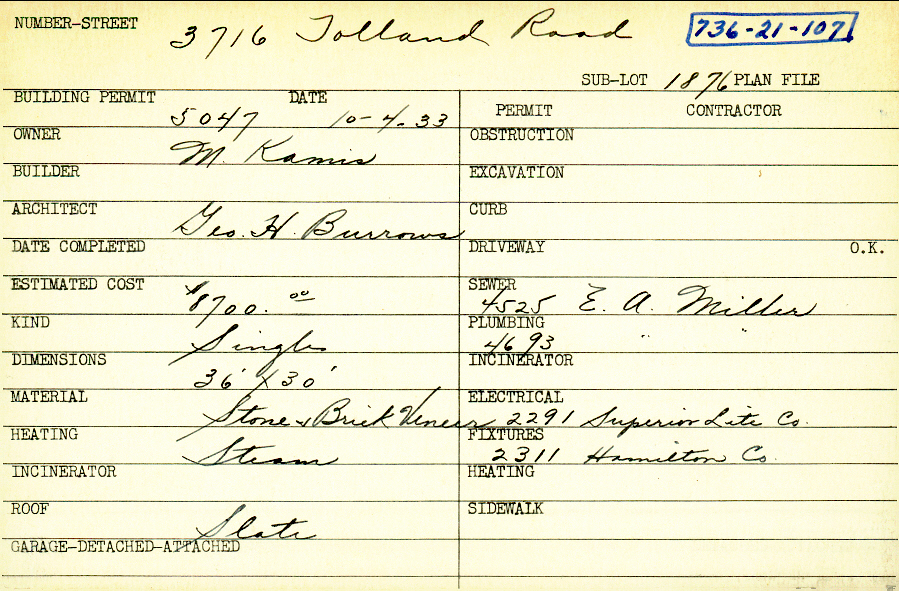 NUMBER-STREET 3716 Tolland Road 736-21-107
SUB-LOT 1876 PLAN FILE
BUILDING PERMIT 5047 DATE 10-4-33
PERMIT CONTRACTOR
OWNER M. Kamis
OBSTRUCTION
BUILDER
EXCAVATION
ARCHITECT Geo. H. Burrows
CURB
DATE COMPLETED
DRIVEWAY O.K.
ESTIMATED COST $8700.00
SEWER 4525 E. A. Miller
KIND Single
PLUMBING 4693 " "
DIMENSIONS 36' x 30'
INCINERATOR
MATERIAL Stone & Brick Veneer
ELECTRICAL 2291 Superior Lite Co.
HEATING Steam
FIXTURES 2311 Hamilton Co.
INCINERATOR
HEATING
ROOF Slate
SIDEWALK
GARAGE-DETACHED-ATTACHED